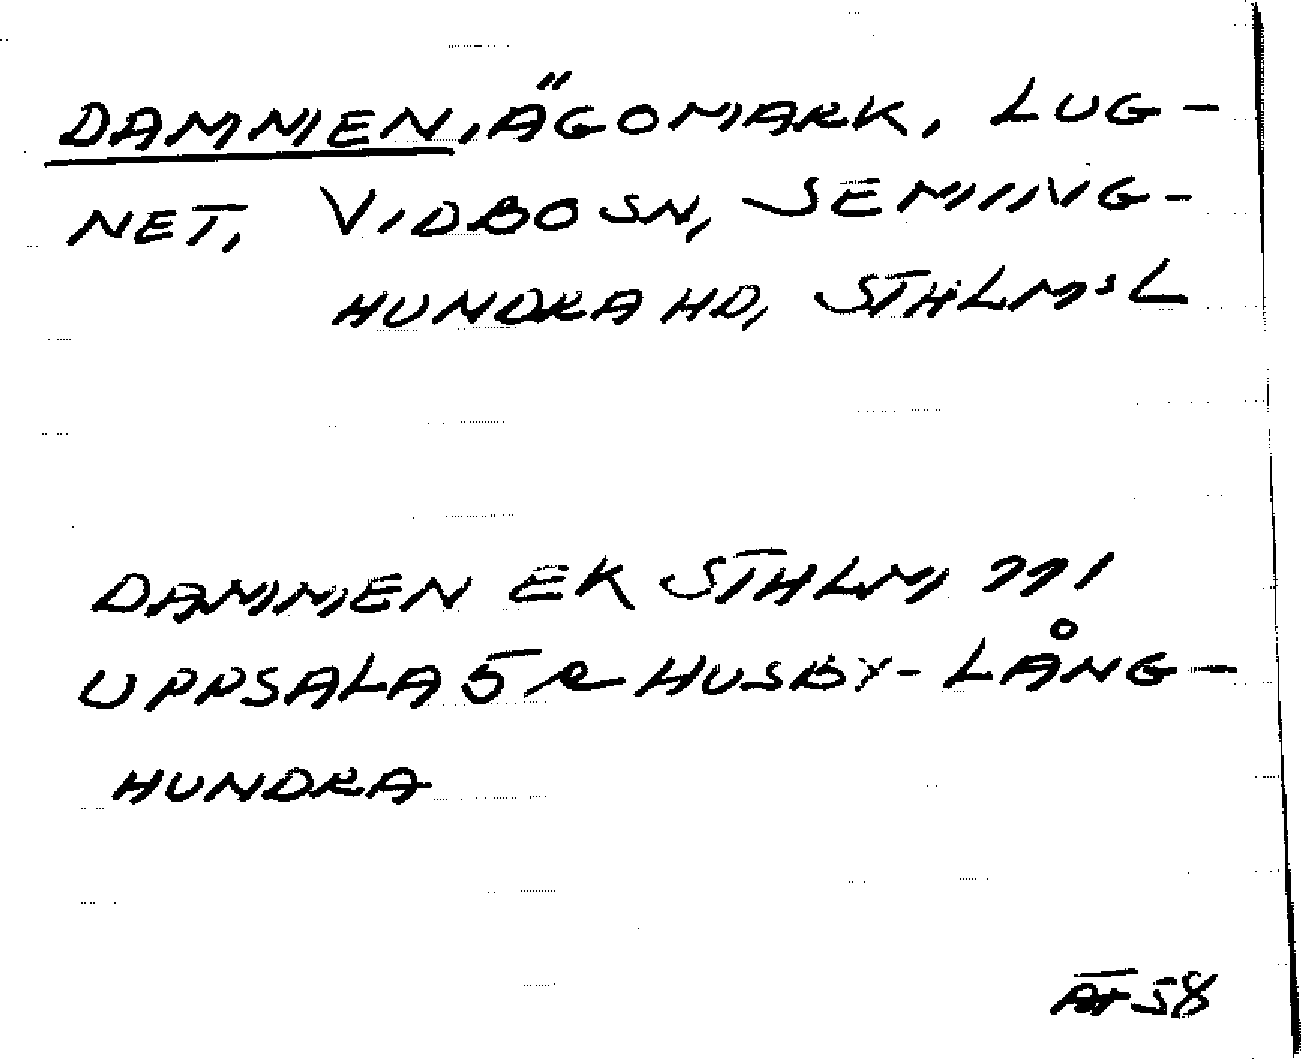 DAMMEN, ÄGOMARK, LUG-
NET, VIDBO SN, SEMING-
HUNDRA HD, STHLMS L
DAMMEN EK STHLM 111
UPPSALA 5 R HUSBY-LÅNG-
HUNDRA
58